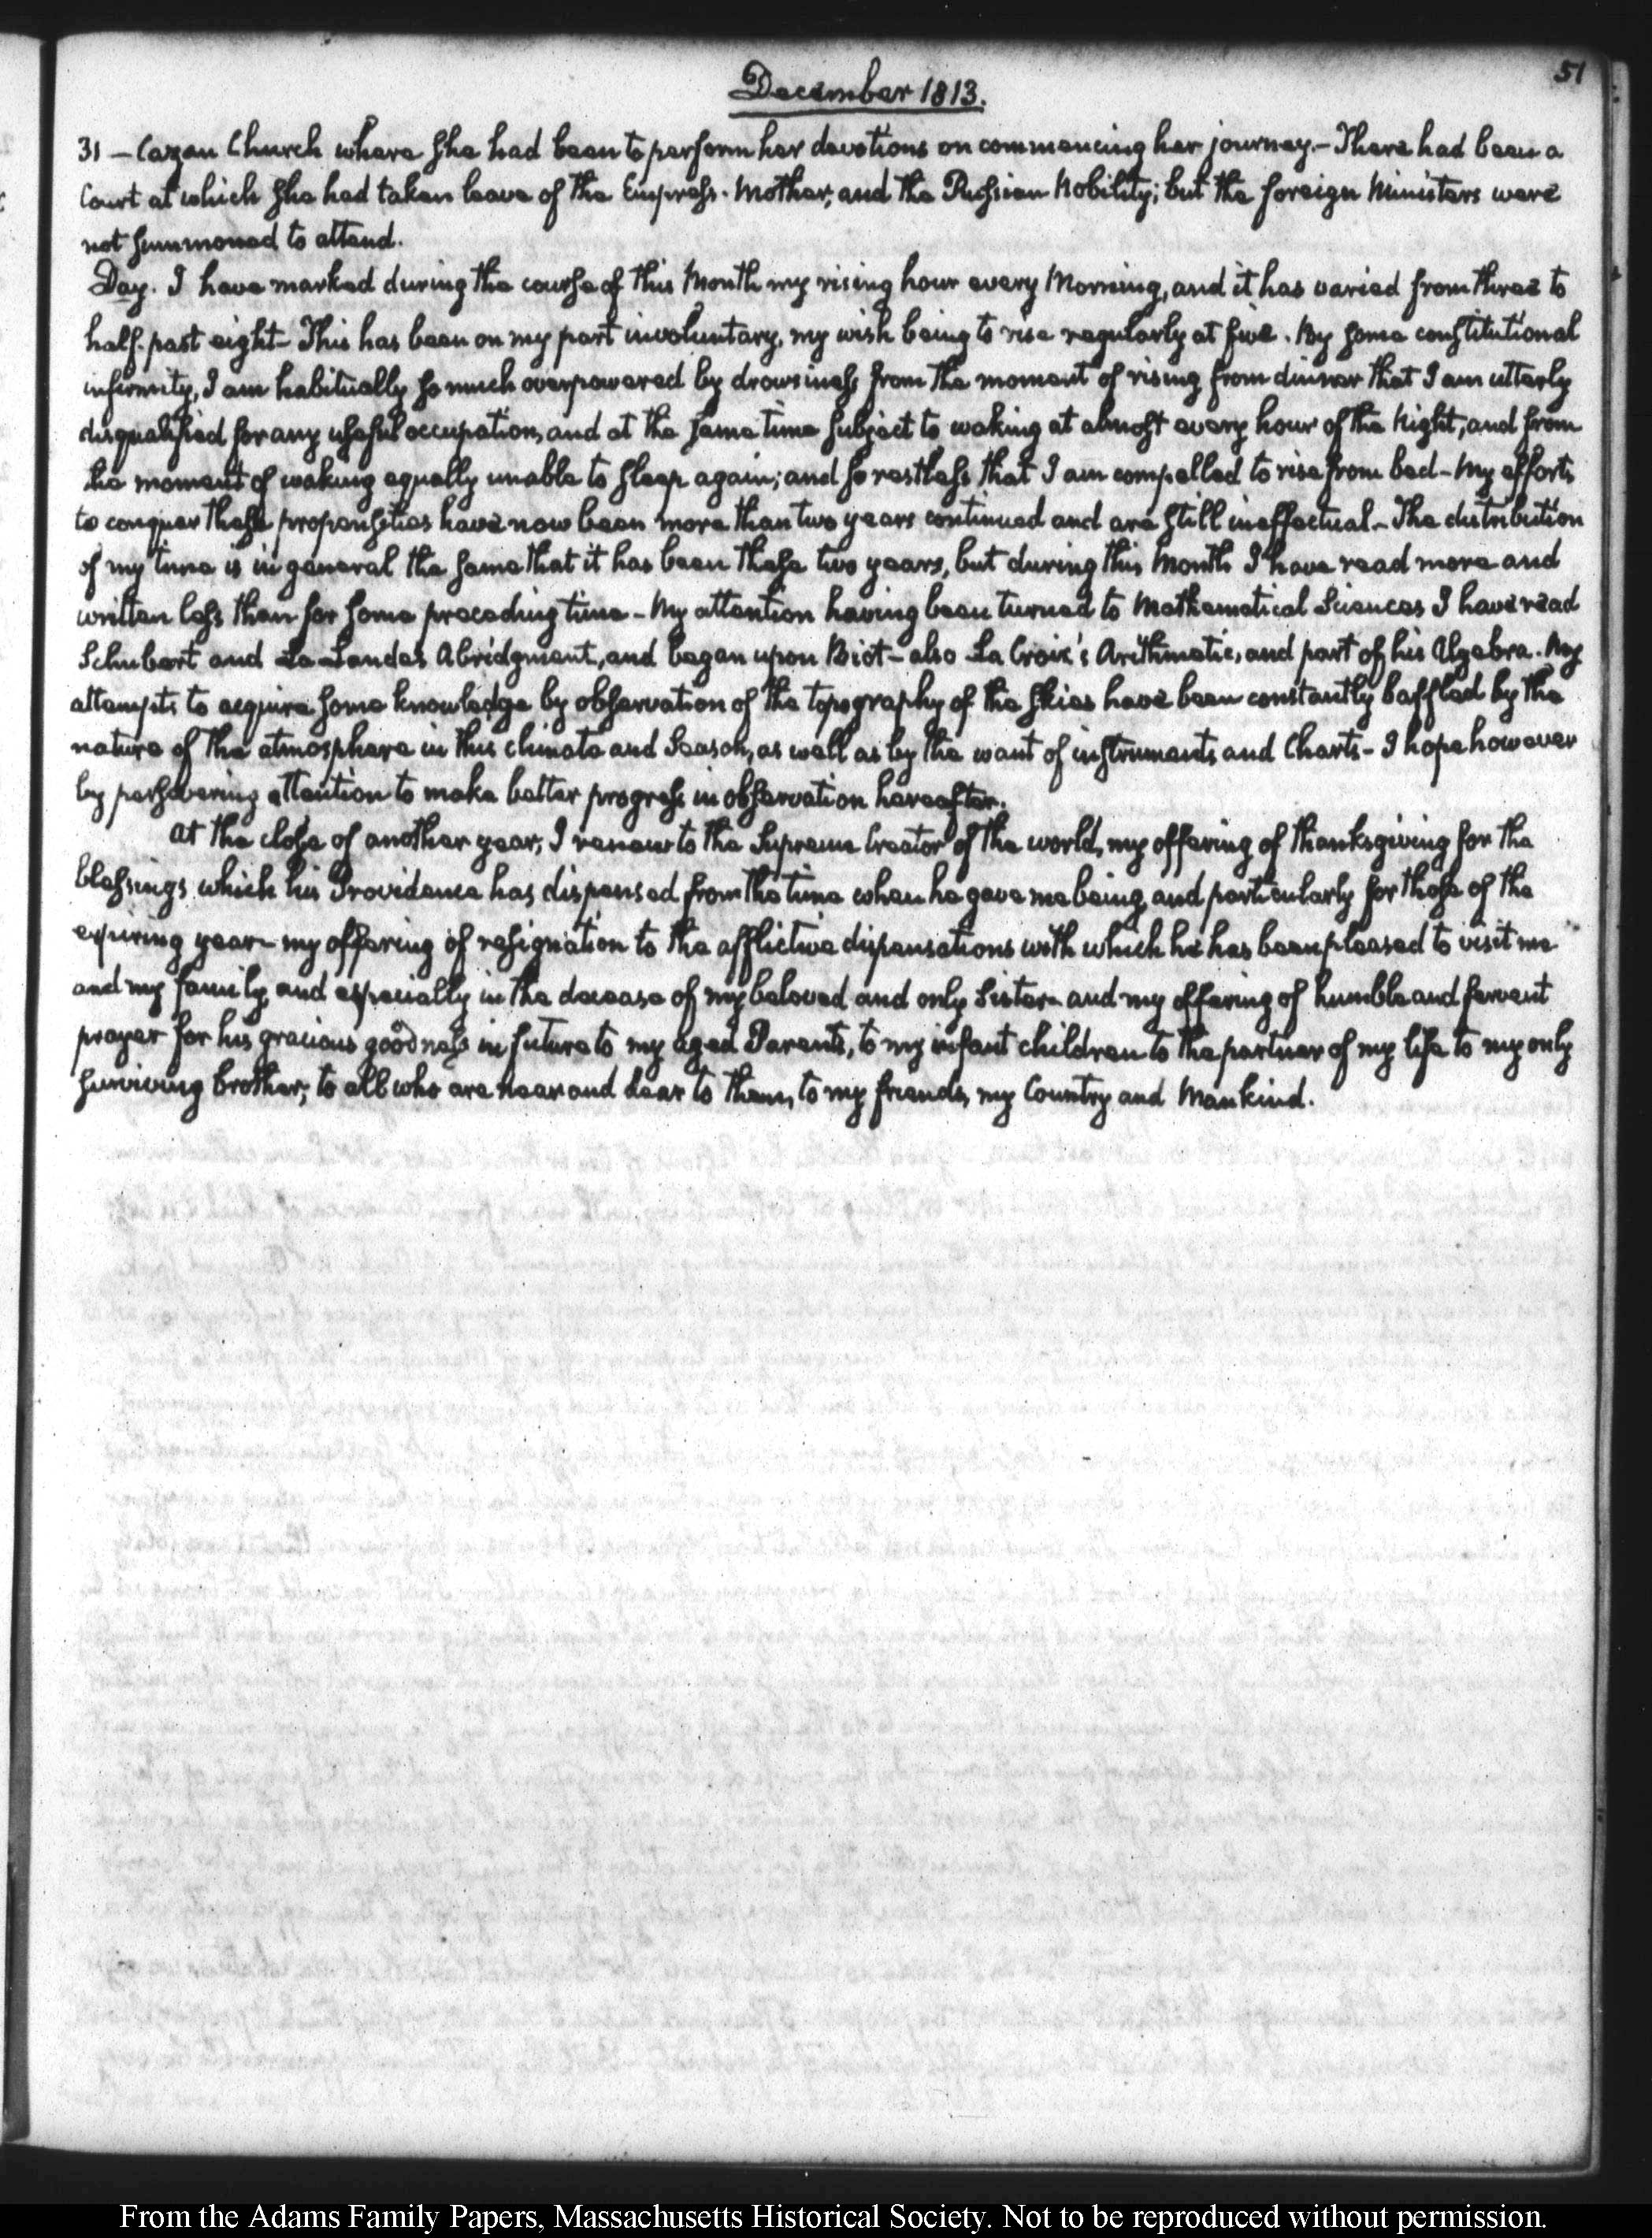 51
December 1813.
31 – Cazan Church where she had been to perform her devotions on commencing her journey.– There had been a
Court at which she had taken leave of the Empress-Mother, and the Russian Nobility; but the foreign Ministers were
not summoned to attend.
Day. I have marked during the course of this Month my rising hour every Morning, and it has varied from three to
half-past eight– This has been on my part involuntary, my wish being to rise regularly at five. By some constitutional
infirmity, I am habitually so much overpowered by drowsiness from the moment of rising from dinner that I am utterly
disqualified for any useful occupation, and at the same time subject to waking at almost every hour of the Night, and from
the moment of waking equally unable to sleep again; and so restless that I am compelled to rise from bed– My efforts
to conquer these propensities have now been more than two years continued and are still ineffectual– The distribution
of my time is in general the same that it has been these two years, but during this Month I have read more and
written less than for some preceding time– My attention having been turned to Mathematical Sciences I have read
Schubert and La Lande's Abridgment, and began upon Biot– also La Croix's Arithmetic, and part of his Algebra. My
attempts to acquire some knowledge by observation of the topography of the skies have been constantly baffled by the
nature of the atmosphere in this climate and Season, as well as by the want of instruments and Charts– I hope however
by persevering attention to make better progress in observation hereafter.
At the close of another year, I renew to the Supreme Creator of the world, my offering of thanksgiving for the
blessings which his Providence has dispensed from the time when he gave me being, and particularly for those of the
expiring year– my offering of resignation to the afflictive dispensations with which he has been pleased to visit me
and my family, and especially in the decease of my beloved and only Sister– and my offering of humble and fervent
prayer for his gracious goodness in future to my aged Parents, to my infant children to the partner of my life to my only
surviving brother; to all who are near and dear to them, to my friends, my Country and Mankind.
From the Adams Family Papers, Massachusetts Historical Society. Not to be reproduced without permission.